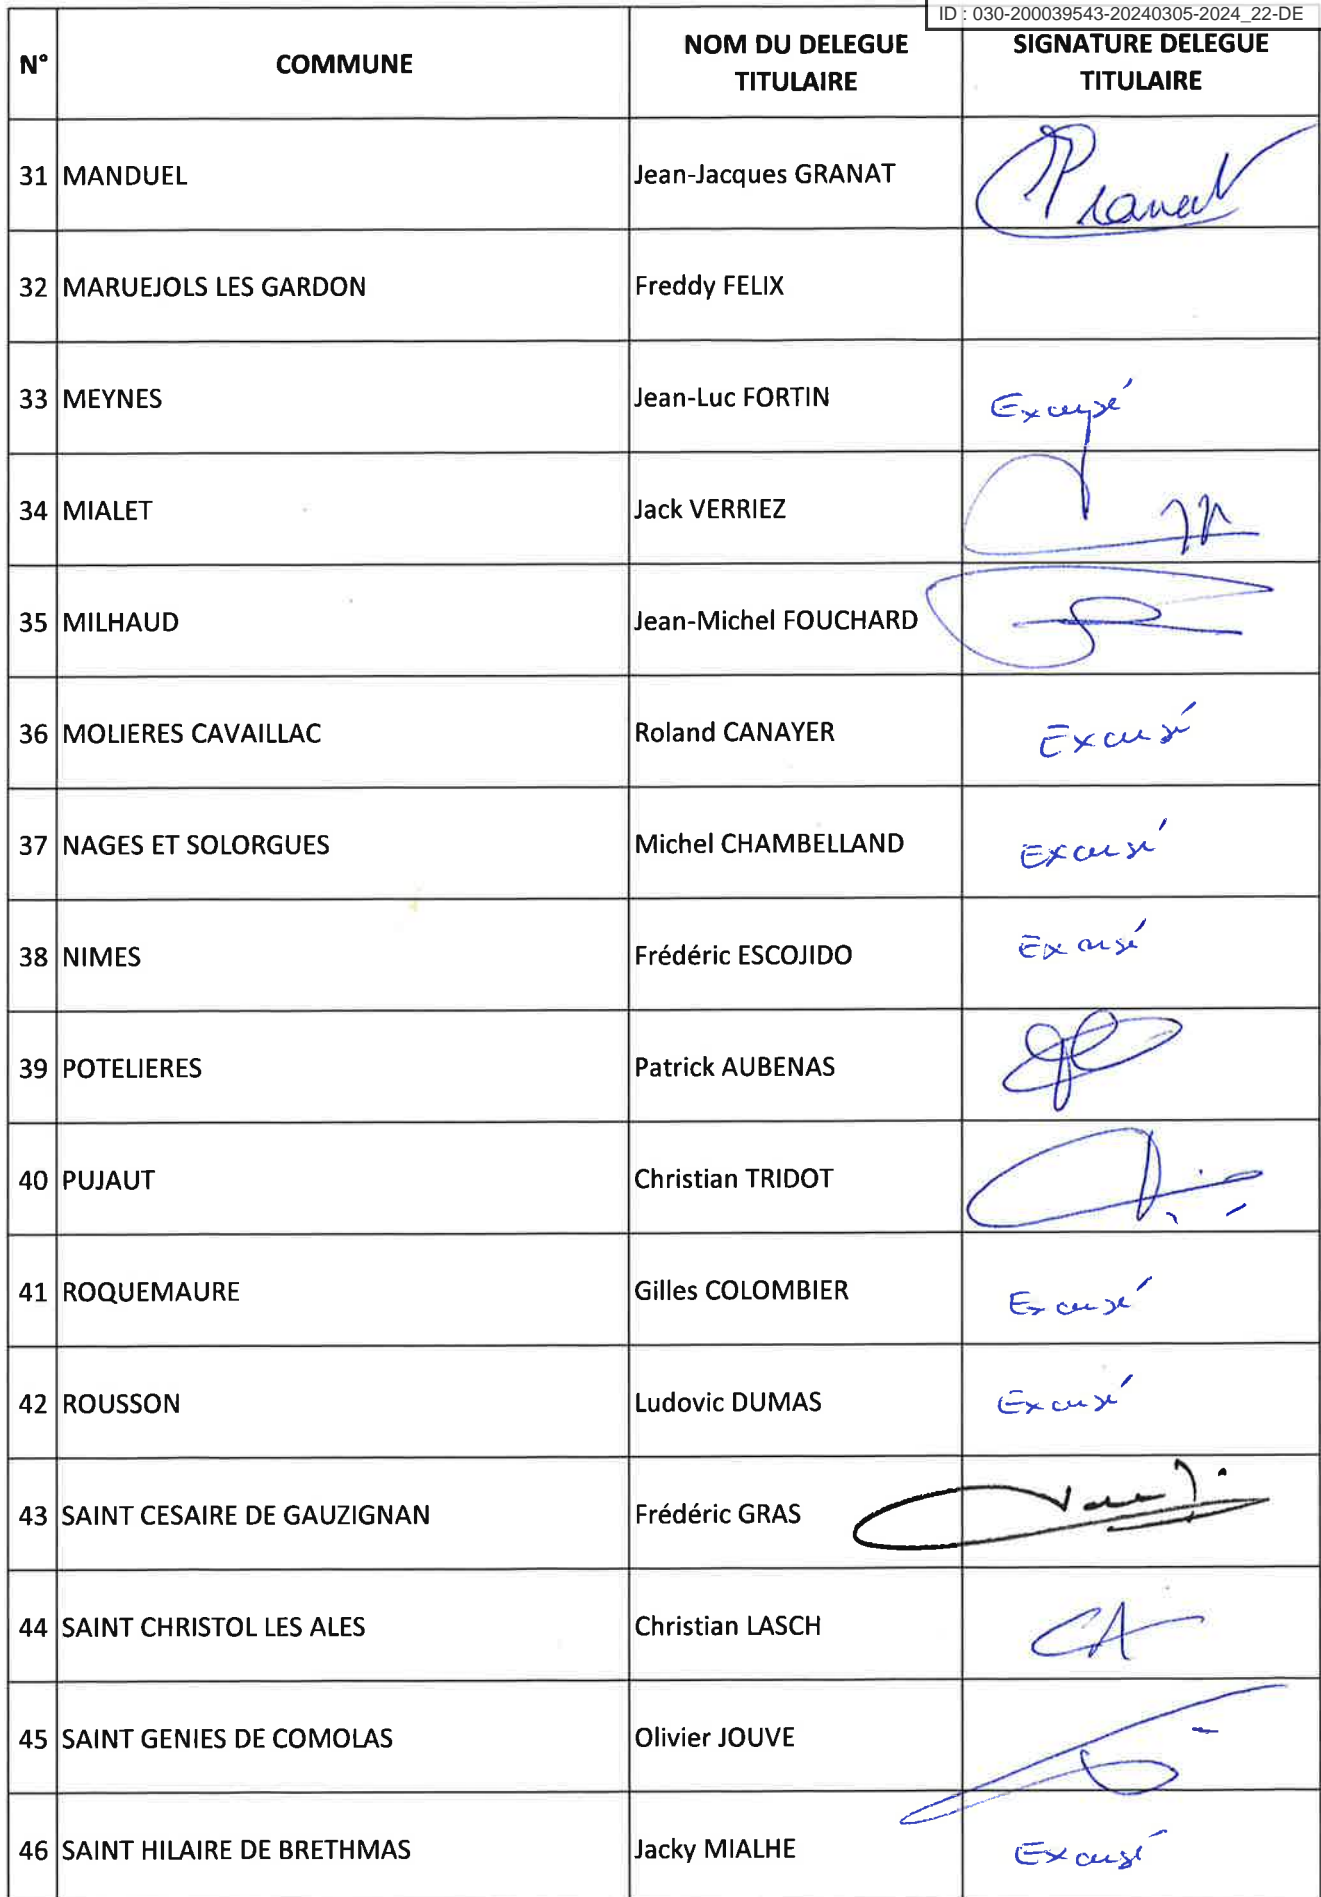 ID : 030-200039543-20240305-2024_22-DE
N° COMMUNE NOM DU DELEGUE TITULAIRE SIGNATURE DELEGUE TITULAIRE
31 MANDUEL Jean-Jacques GRANAT Granat
32 MARUEJOLS LES GARDON Freddy FELIX
33 MEYNES Jean-Luc FORTIN Excusé
34 MIALET Jack VERRIEZ
35 MILHAUD Jean-Michel FOUCHARD
36 MOLIERES CAVAILLAC Roland CANAYER Excusé
37 NAGES ET SOLORGUES Michel CHAMBELLAND Excusé
38 NIMES Frédéric ESCOJIDO Excusé
39 POTELIERES Patrick AUBENAS
40 PUJAUT Christian TRIDOT
41 ROQUEMAURE Gilles COLOMBIER Excusé
42 ROUSSON Ludovic DUMAS Excusé
43 SAINT CESAIRE DE GAUZIGNAN Frédéric GRAS
44 SAINT CHRISTOL LES ALES Christian LASCH
45 SAINT GENIES DE COMOLAS Olivier JOUVE
46 SAINT HILAIRE DE BRETHMAS Jacky MIALHE Excusé